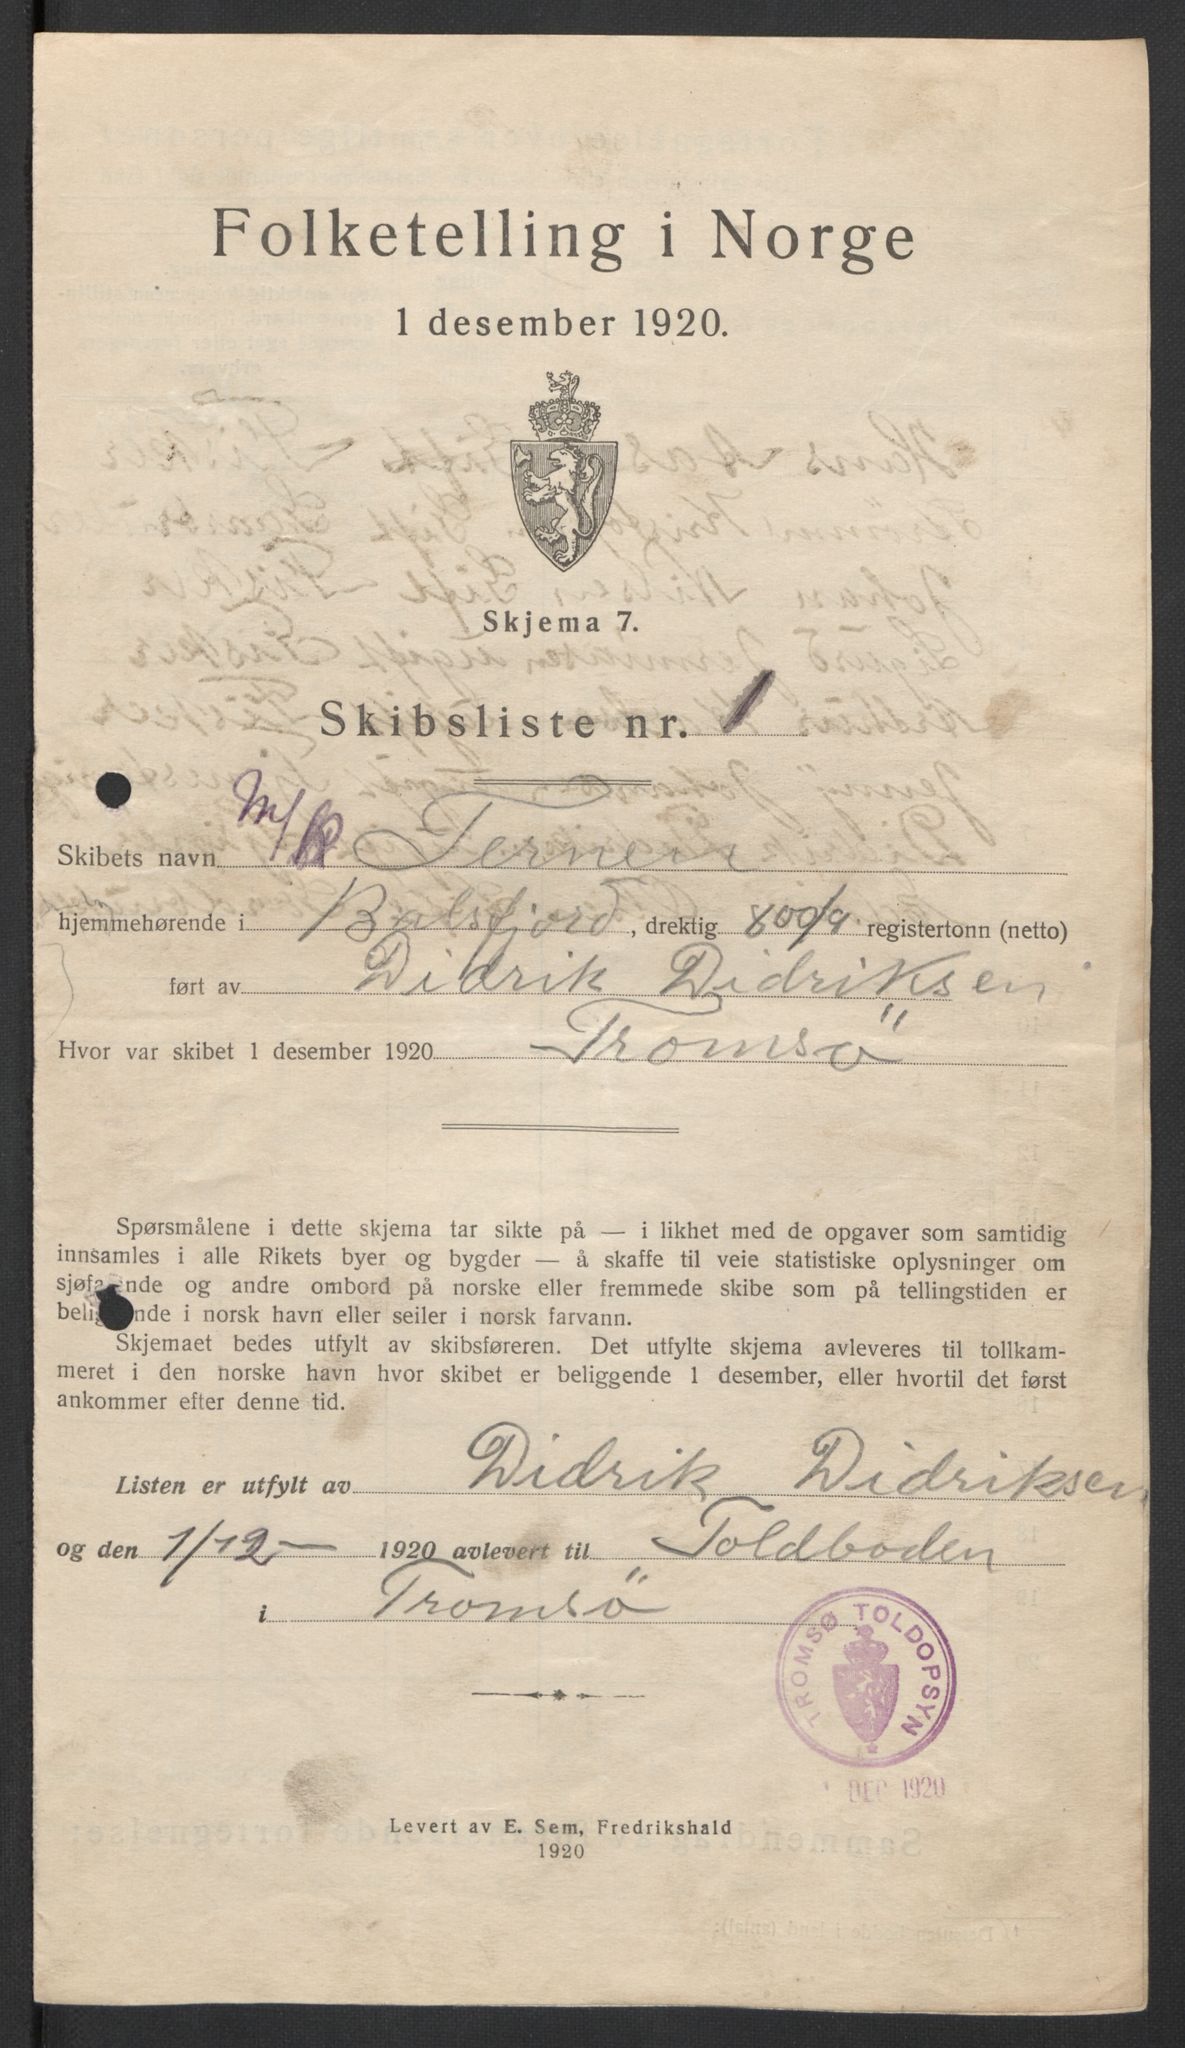 Folketelling i Norge
1 desember 1920.
Skjema 7.
Skibsliste nr. 1
Skibets navn M/K Ternen
hjemmehørende i Balsfjord, drektig 800/9 registertonn (netto)
ført av Didrik Didriksen
Hvor var skibet 1 desember 1920 Tromsö
Spørsmålene i dette skjema tar sikte på — i likhet med de opgaver som samtidig
innsamles i alle Rikets byer og bygder — å skaffe til veie statistiske oplysninger om
sjøfarende og andre ombord på norske eller fremmede skibe som på tellingstiden er
beliggende i norsk havn eller seiler i norsk farvann.
Skjemaet bedes utfylt av skibsføreren. Det utfylte skjema avleveres til tollkam-
meret i den norske havn hvor skibet er beliggende 1 desember, eller hvortil det først
ankommer efter denne tid.
Listen er utfylt av Didrik Didriksen
og den 1/12- 1920 avlevert til Toldboden
i Tromsö
TROMSØ TOLDOPSYN
1 DEC 1920
Levert av E. Sem, Fredrikshald
1920